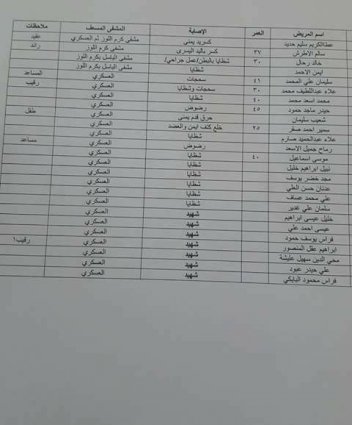 اسم المريض العمر الإصابة المشفى المسعف ملاحظات
عبدالكريم سليم حديد كسر يد يمنى مشفى كرم اللوز ثم العسكري عقيد
سالم الأطرش ٢٧ كسر باليد اليسرى مشفى كرم اللوز رائد
خالد رحال ٣٠ شظايا بالبطن (عمل جراحي) مشفى الباسل بكرم اللوز
ايمن الاحمد شظايا مشفى الباسل بكرم اللوز
سليمان علي المحمد ٤١ سحجات العسكري المساعد
علاء عبداللطيف محمد ٣٠ سحجات وشظايا العسكري رقيب
محمد اسعد محمد ٤٠ شظايا العسكري
حيدر ماجد حمود ٤٥ رضوض العسكري
شعيب سليمان حرق قدم يمنى العسكري طفل
سمير احمد صقر ٢٥ خلع كتف ايمن والعضد العسكري
علاء عبدالحميد صارم شظايا العسكري
رماح جميل الاسعد رضوض العسكري مساعد
موسى اسماعيل ٤٠ شظايا العسكري
نبيل ابراهيم خليل شظايا العسكري
مجد خضر يوسف شظايا العسكري
عدنان حسن العلي شظايا العسكري
علي محمد عساف شظايا العسكري
سلمان علي غدير شظايا العسكري
خليل عيسى ابراهيم شهيد العسكري
عيسى احمد علي شهيد العسكري
فراس يوسف حمود شهيد العسكري
ابراهيم عقل المنصور شهيد العسكري رقيب١
محي الدين سهيل شهيد العسكري
علي حيدر عبود شهيد العسكري
فراس محمود شهيد العسكري